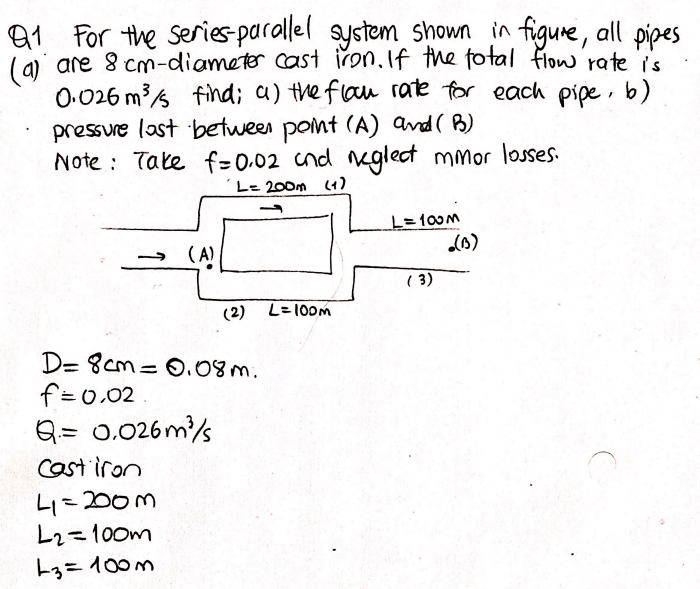 Q1 For the series-parallel system shown in figure, all pipes
(a) are 8 cm-diameter cast iron. If the total flow rate is
0.026 m³/s find; a) the flow rate for each pipe, b)
pressure lost between point (A) and (B)
Note: Take f=0.02 and neglect minor losses.
L= 200m (1)
L=100m
(A)
(B)
(3)
(2) L=100m
D= 8cm = 0.08m.
f=0.02
Q.= 0.026 m³/s
Cast iron
L1=200m
L2=100m
L3=100m